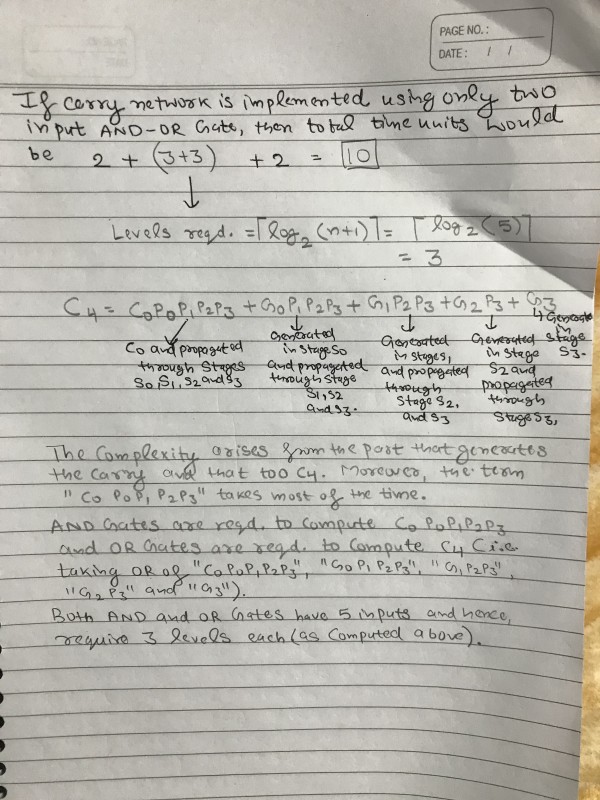 PAGE NO.:
DATE: / /
If carry network is implemented using only two
input AND-OR Gate, then total time units would
be 2 + (3+3) + 2 = 10
↓
Levels reqd. = ⌈log₂(n+1)⌉ = ⌈log₂(5)⌉
= 3
C4 = C0P0P1P2P3 + G0P1P2P3 + G1P2P3 + G2P3 + G3
C0 and propogated
through Stages
S0, S1, S2 and S3
Generated
in stage S0
and propagated
through stage
S1, S2
and S3.
Generated
in stage S1
and propagated
through
Stage S2,
and S3
Generated
in stage
S2 and
propagated
through
Stage S3,
↳ Generate
in
stage
S3.
The Complexity arises from the part that generates
the Carry and that too C4. Moreover, the term
"C0 P0P1 P2P3" takes most of the time.
AND Gates are reqd. to compute C0 P0P1P2P3
and OR Gates are reqd. to Compute C4 (i.e.
taking OR of "C0P0P1P2P3", "G0P1P2P3", "G1P2P3",
"G2P3" and "G3").
Both AND and OR Gates have 5 inputs and hence,
require 3 levels each (as Computed above).